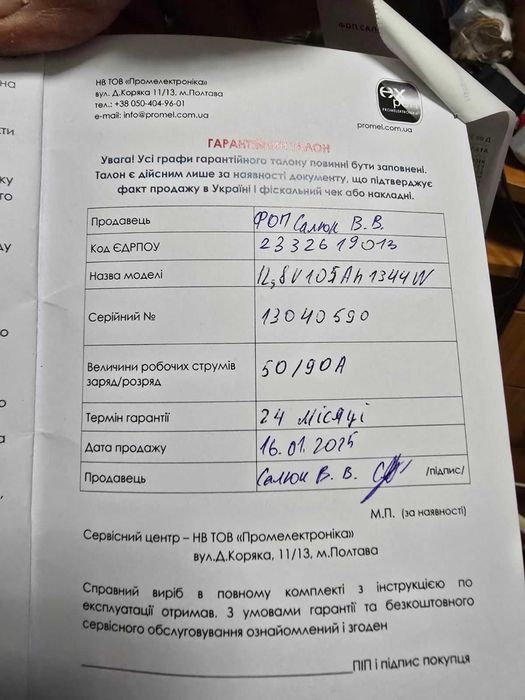 НВ ТОВ «Промелектроніка»
вул. Д.Коряка 11/13, м.Полтава
тел.: +38 050-404-96-01
e-mail: info@promel.com.ua
ex
PROMELEKTRONIKA
promel.com.ua
ГАРАНТІЙНИЙ ТАЛОН
Увага! Усі графи гарантійного талону повинні бути заповнені.
Талон є дійсним лише за наявності документу, що підтверджує
факт продажу в Україні і фіскальний чек або накладні.
Продавець ФОП Салюк В.В.
Код ЄДРПОУ 2332619013
Назва моделі 12,8V105Ah1344W
Серійний № 13040590
Величини робочих струмів
заряд/розряд 50/90А
Термін гарантії 24 місяці
Дата продажу 16.01.2025
Продавець Салюк В. В. /підпис/
М.П. (за наявності)
Сервісний центр – НВ ТОВ «Промелектроніка»
вул.Д.Коряка, 11/13, м.Полтава
Справний виріб в повному комплекті з інструкцією по
експлуатації отримав. З умовами гарантії та безкоштовного
сервісного обслуговування ознайомлений і згоден
ПІП і підпис покупця